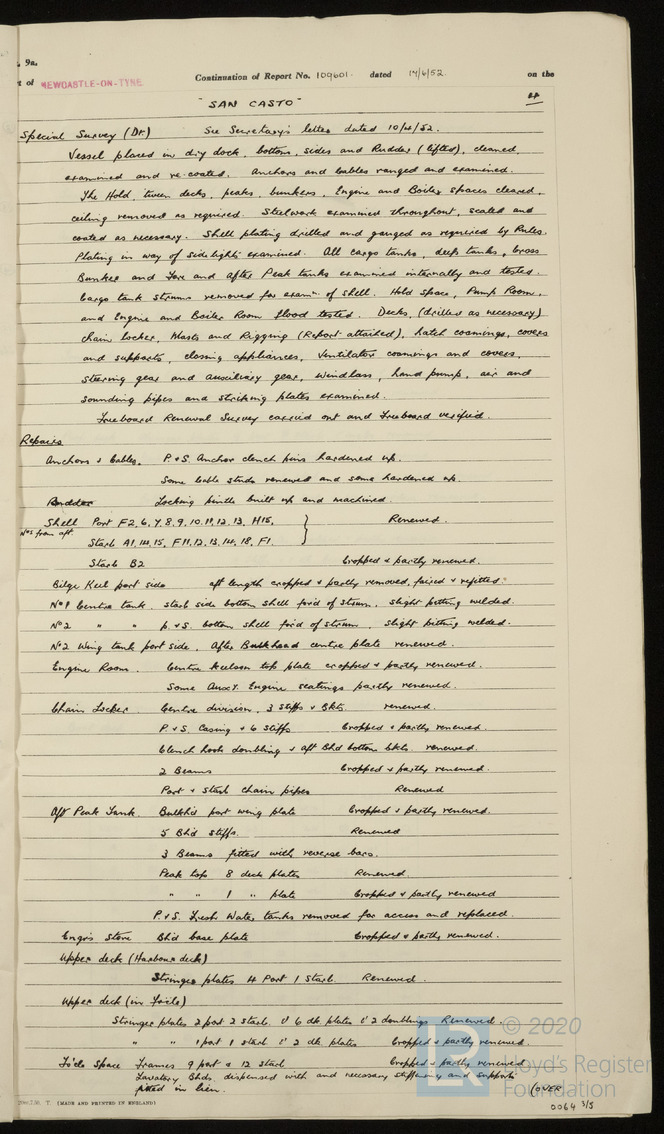 9a.
Continuation of Report No. 109601. dated 14/6/52. on the
t of NEWCASTLE-ON-TYNE
"SAN CASTO"
Special Survey (Dr.) See Secretary's letter dated 10/4/52.
Vessel placed in dry dock, bottom, sides and Rudder (lifted), cleaned,
examined and re-coated. Anchors and cables ranged and examined.
The Hold, tween decks, peaks, bunkers, Engine and Boiler spaces cleared,
ceiling removed as required. Steelwork examined throughout, scaled and
coated as necessary. Shell plating drilled and gauged as required by Rules.
Plating in way of sidelights examined. All cargo tanks, deep tanks, Cross
Bunker and Fore and After Peak tanks examined internally and tested.
Cargo tank strums removed for examn. of shell. Hold Space, Pump Room,
and Engine and Boiler Room flood tested. Decks, (drilled as necessary)
chain locker, Masts and Rigging (Report attached), hatch coamings, covers
and supports, closing appliances, Ventilator coamings and covers,
steering gear and auxiliary gear, windlass, hand pump, air and
sounding pipes and striking plates examined.
Freeboard Renewal Survey carried out and Freeboard verified.
Repairs
Anchors & Cables. P. & S. Anchor clench pins hardened up.
Some cable studs renewed and some hardened up.
Rudder Locking pintle built up and machined.
Shell Port F2, 6, 7, 8, 9, 10, 11, 12, 13, H15, Renewed.
Nos from aft. Starb A1, 14, 15, F11, 12, 13, 14, 18, F1.
Starb B2 Cropped & partly renewed.
Bilge Keel port side aft length cropped & partly removed, faired & refitted.
No 1 Centre tank. starb side bottom shell for'd of strum, slight pitting welded.
No 2 " " p. & S. bottom shell for'd of strum, slight pitting welded.
No 2 Wing tank port side. After Bulkhead centre plate renewed.
Engine Room. Centre keelson top plate cropped & partly renewed.
Some Auxy. Engine seatings partly renewed.
Chain Locker Centre division, 3 stiffs & Bkts. renewed.
P. & S. Casing & 6 stiffs Cropped & partly renewed.
Clench hook doubling & aft Bhd bottom bkts. renewed.
2 Beams Cropped & partly renewed.
Port & Starb Chain pipes Renewed
Aft Peak Tank. Bulkh'd port wing plate Cropped & partly renewed.
5 Bhd stiffs. Renewed
3 Beams fitted with reverse bars.
Peak top 8 deck plates Renewed.
" " 1 " plate Cropped & partly renewed
P. & S. Fresh Water tanks removed for access and replaced.
Engrs Store Bhd base plate Cropped & partly renewed.
Upper deck (Harbour deck)
Stringer plates 4 Port 1 Starb. Renewed.
Upper deck (in Fo'cle)
Stringer plates 2 port 2 starb. 6 dk plates 2 doublings Renewed.
" " 1 port 1 starb 2 dk plates Cropped & partly renewed.
Fo'cle Space Frames 9 port & 12 starb Cropped & partly renewed
Lavatory Bhds. dispensed with and necessary stiffening and supports
fitted in lieu.
(OVER
0064 3/5
(MADE AND PRINTED IN ENGLAND)
© 2020
Lloyd's Register
Foundation